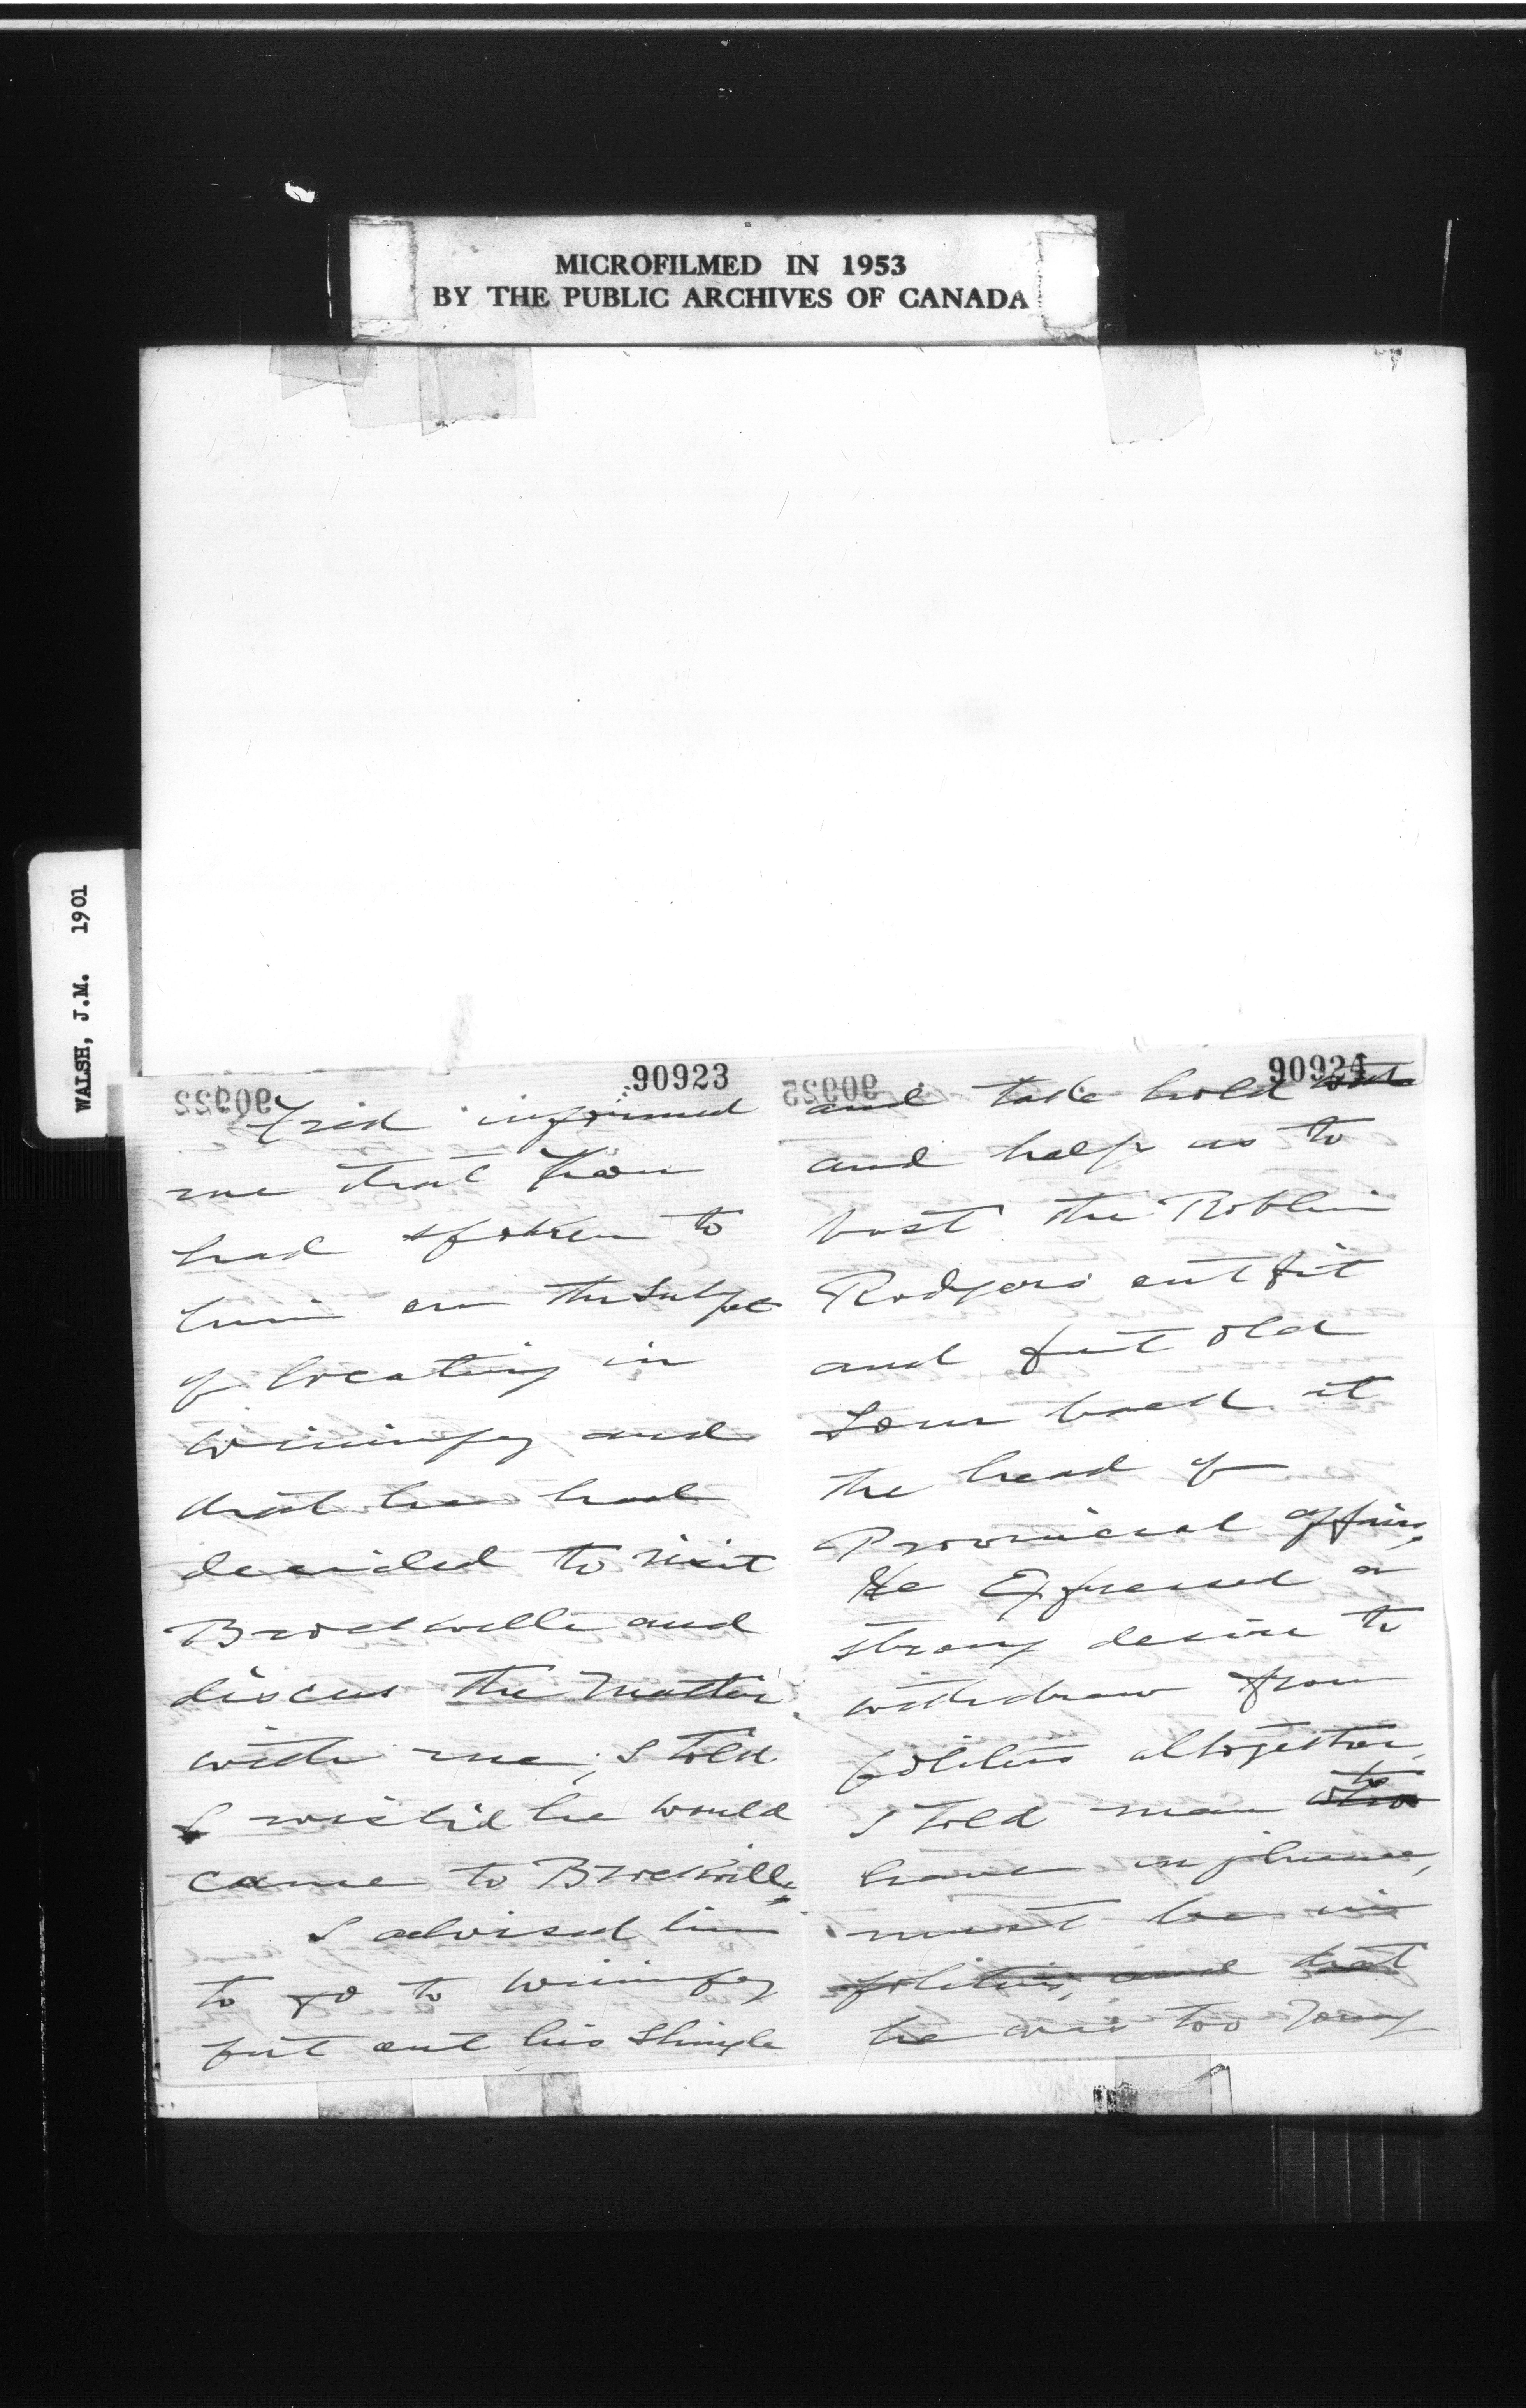 MICROFILMED IN 1953
BY THE PUBLIC ARCHIVES OF CANADA
WALSH, J.M. 1901
90923
informed
me that you
had spoken to
him on the subject
of locating in
Winnipeg and
that he had
decided to visit
Brockville and
discus the matter
with me, I told
I wished he would
come to Brockville
I advised him
to go to Winnipeg
put out his shingle
90924
and take hold
and help us to
bust the Roblin
Rodgers outfit
and put old
Tom back at
the head of
Provincial affairs,
He Expressed a
strong desire to
withdraw from
politics altogether,
I told man to
have influence,
must be in
politics, and that
he was too young